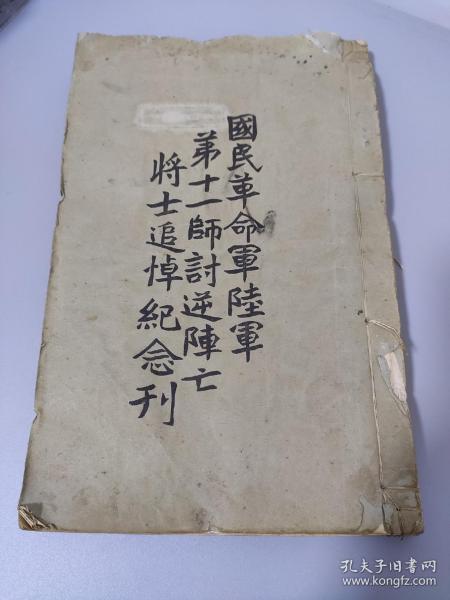 國民革命軍陸軍
第十一師討逆陣亡
將士追悼紀念刊
孔夫子旧书网
www.kongfz.com